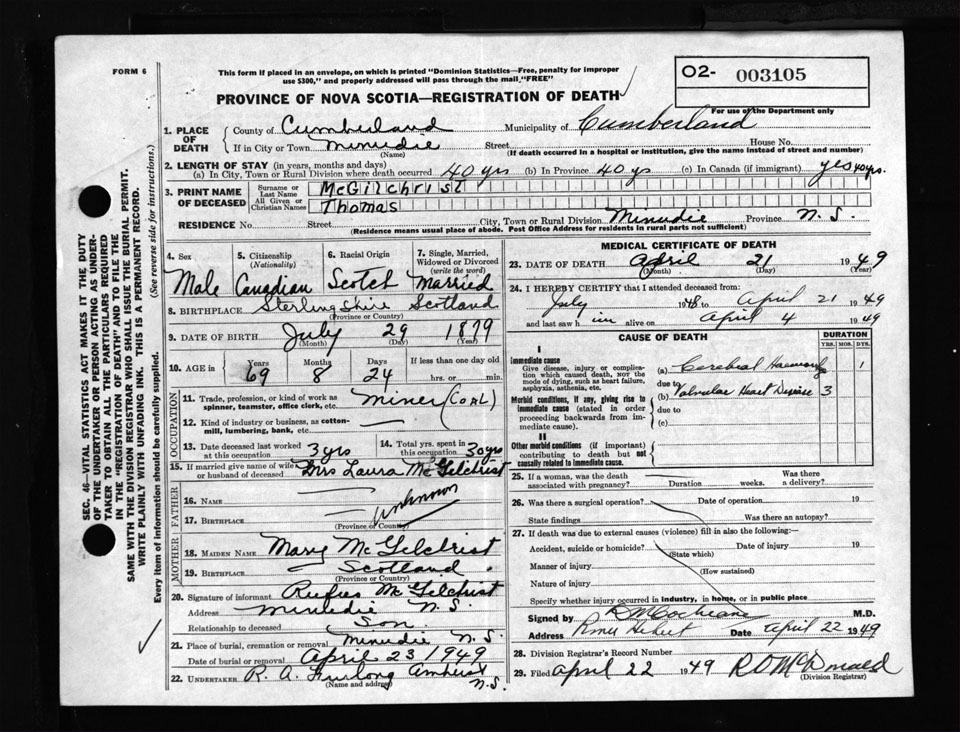 FORM 6
This form if placed in an envelope, on which is printed "Dominion Statistics—Free, penalty for improper
use $300," and properly addressed will pass through the mail "FREE"
O2- 003105
PROVINCE OF NOVA SCOTIA—REGISTRATION OF DEATH
For use of the Department only
1. PLACE OF DEATH
County of Cumberland Municipality of Cumberland
If in City or Town Minudie Street House No.
(Name) (If death occurred in a hospital or institution, give the name instead of street and number)
2. LENGTH OF STAY (in years, months and days)
(a) In City, Town or Rural Division where death occurred 40 yrs (b) In Province 40 ys (c) In Canada (if immigrant) yes 40 yrs.
3. PRINT NAME OF DECEASED
Surname or Last Name McGilchrist
All Given or Christian Names Thomas
RESIDENCE No. Street City, Town or Rural Division Minudie Province N.S.
(Residence means usual place of abode. Post Office Address for residents in rural parts not sufficient)
4. Sex Male
5. Citizenship (Nationality) Canadian
6. Racial Origin Scotch
7. Single, Married, Widowed or Divorced (write the word) Married
8. BIRTHPLACE Sterlingshire Scotland
(Province or Country)
9. DATE OF BIRTH July 29 1879
(Month) (Day) (Year)
10. AGE in Years 69 Months 8 Days 24 If less than one day old
hrs. or min.
OCCUPATION
11. Trade, profession, or kind of work as spinner, teamster, office clerk, etc. Miner (COAL)
12. Kind of industry or business, as cotton-mill, lumbering, bank, etc. —
13. Date deceased last worked at this occupation 3 yrs
14. Total yrs. spent in this occupation 30 yrs
15. If married give name of wife or husband of deceased Mrs Laura McGilchrist
FATHER
16. Name —
17. BIRTHPLACE — unknown
(Province or Country)
MOTHER
18. MAIDEN NAME Mary McGilchrist
19. BIRTHPLACE Scotland
(Province or Country)
20. Signature of informant Rufus McGilchrist
Address Minudie N.S.
Relationship to deceased Son
21. Place of burial, cremation or removal Minudie N.S.
Date of burial or removal April 23 1949
22. UNDERTAKER R. A. Furlong Amherst N.S.
(Name and address)
MEDICAL CERTIFICATE OF DEATH
23. DATE OF DEATH April 21 1949
(Month) (Day) (Year)
24. I HEREBY CERTIFY that I attended deceased from:
July 1948 to April 21 1949
and last saw him alive on April 4 1949
CAUSE OF DEATH
DURATION
YRS. MOS. DYS.
I
Immediate cause
Give disease, injury or complication which caused death, NOT the mode of dying, such as heart failure, asphyxia, asthenia, etc.
(a) Cerebral 1
due to
Morbid conditions, if any, giving rise to immediate cause (stated in order proceeding backwards from immediate cause).
(b) Valvular Heart Disease 3
due to
(c)
II
Other morbid conditions (if important) contributing to death but not causally related to immediate cause.
25. If a woman, was the death associated with pregnancy? Duration weeks. Was there a delivery?
26. Was there a surgical operation? Date of operation 19
State findings Was there an autopsy?
27. If death was due to external causes (violence) fill in also the following:—
Accident, suicide or homicide? Date of injury 19
(State which)
Manner of injury
(How sustained)
Nature of injury
Specify whether injury occurred in industry, in home, or in public place
Signed by Cochrane M.D.
Address River Hebert Date April 22 1949
28. Division Registrar's Record Number
29. Filed April 22 1949 R D McDonald
(Division Registrar)
SEC. 46—VITAL STATISTICS ACT MAKES IT THE DUTY
OF THE UNDERTAKER OR PERSON ACTING AS UNDER-
TAKER TO OBTAIN ALL THE PARTICULARS REQUIRED
IN THE "REGISTRATION OF DEATH" AND TO FILE THE
SAME WITH THE DIVISION REGISTRAR WHO SHALL ISSUE THE BURIAL PERMIT.
WRITE PLAINLY WITH UNFADING INK. THIS IS A PERMANENT RECORD.
Every item of information should be carefully supplied. (See reverse side for instructions.)